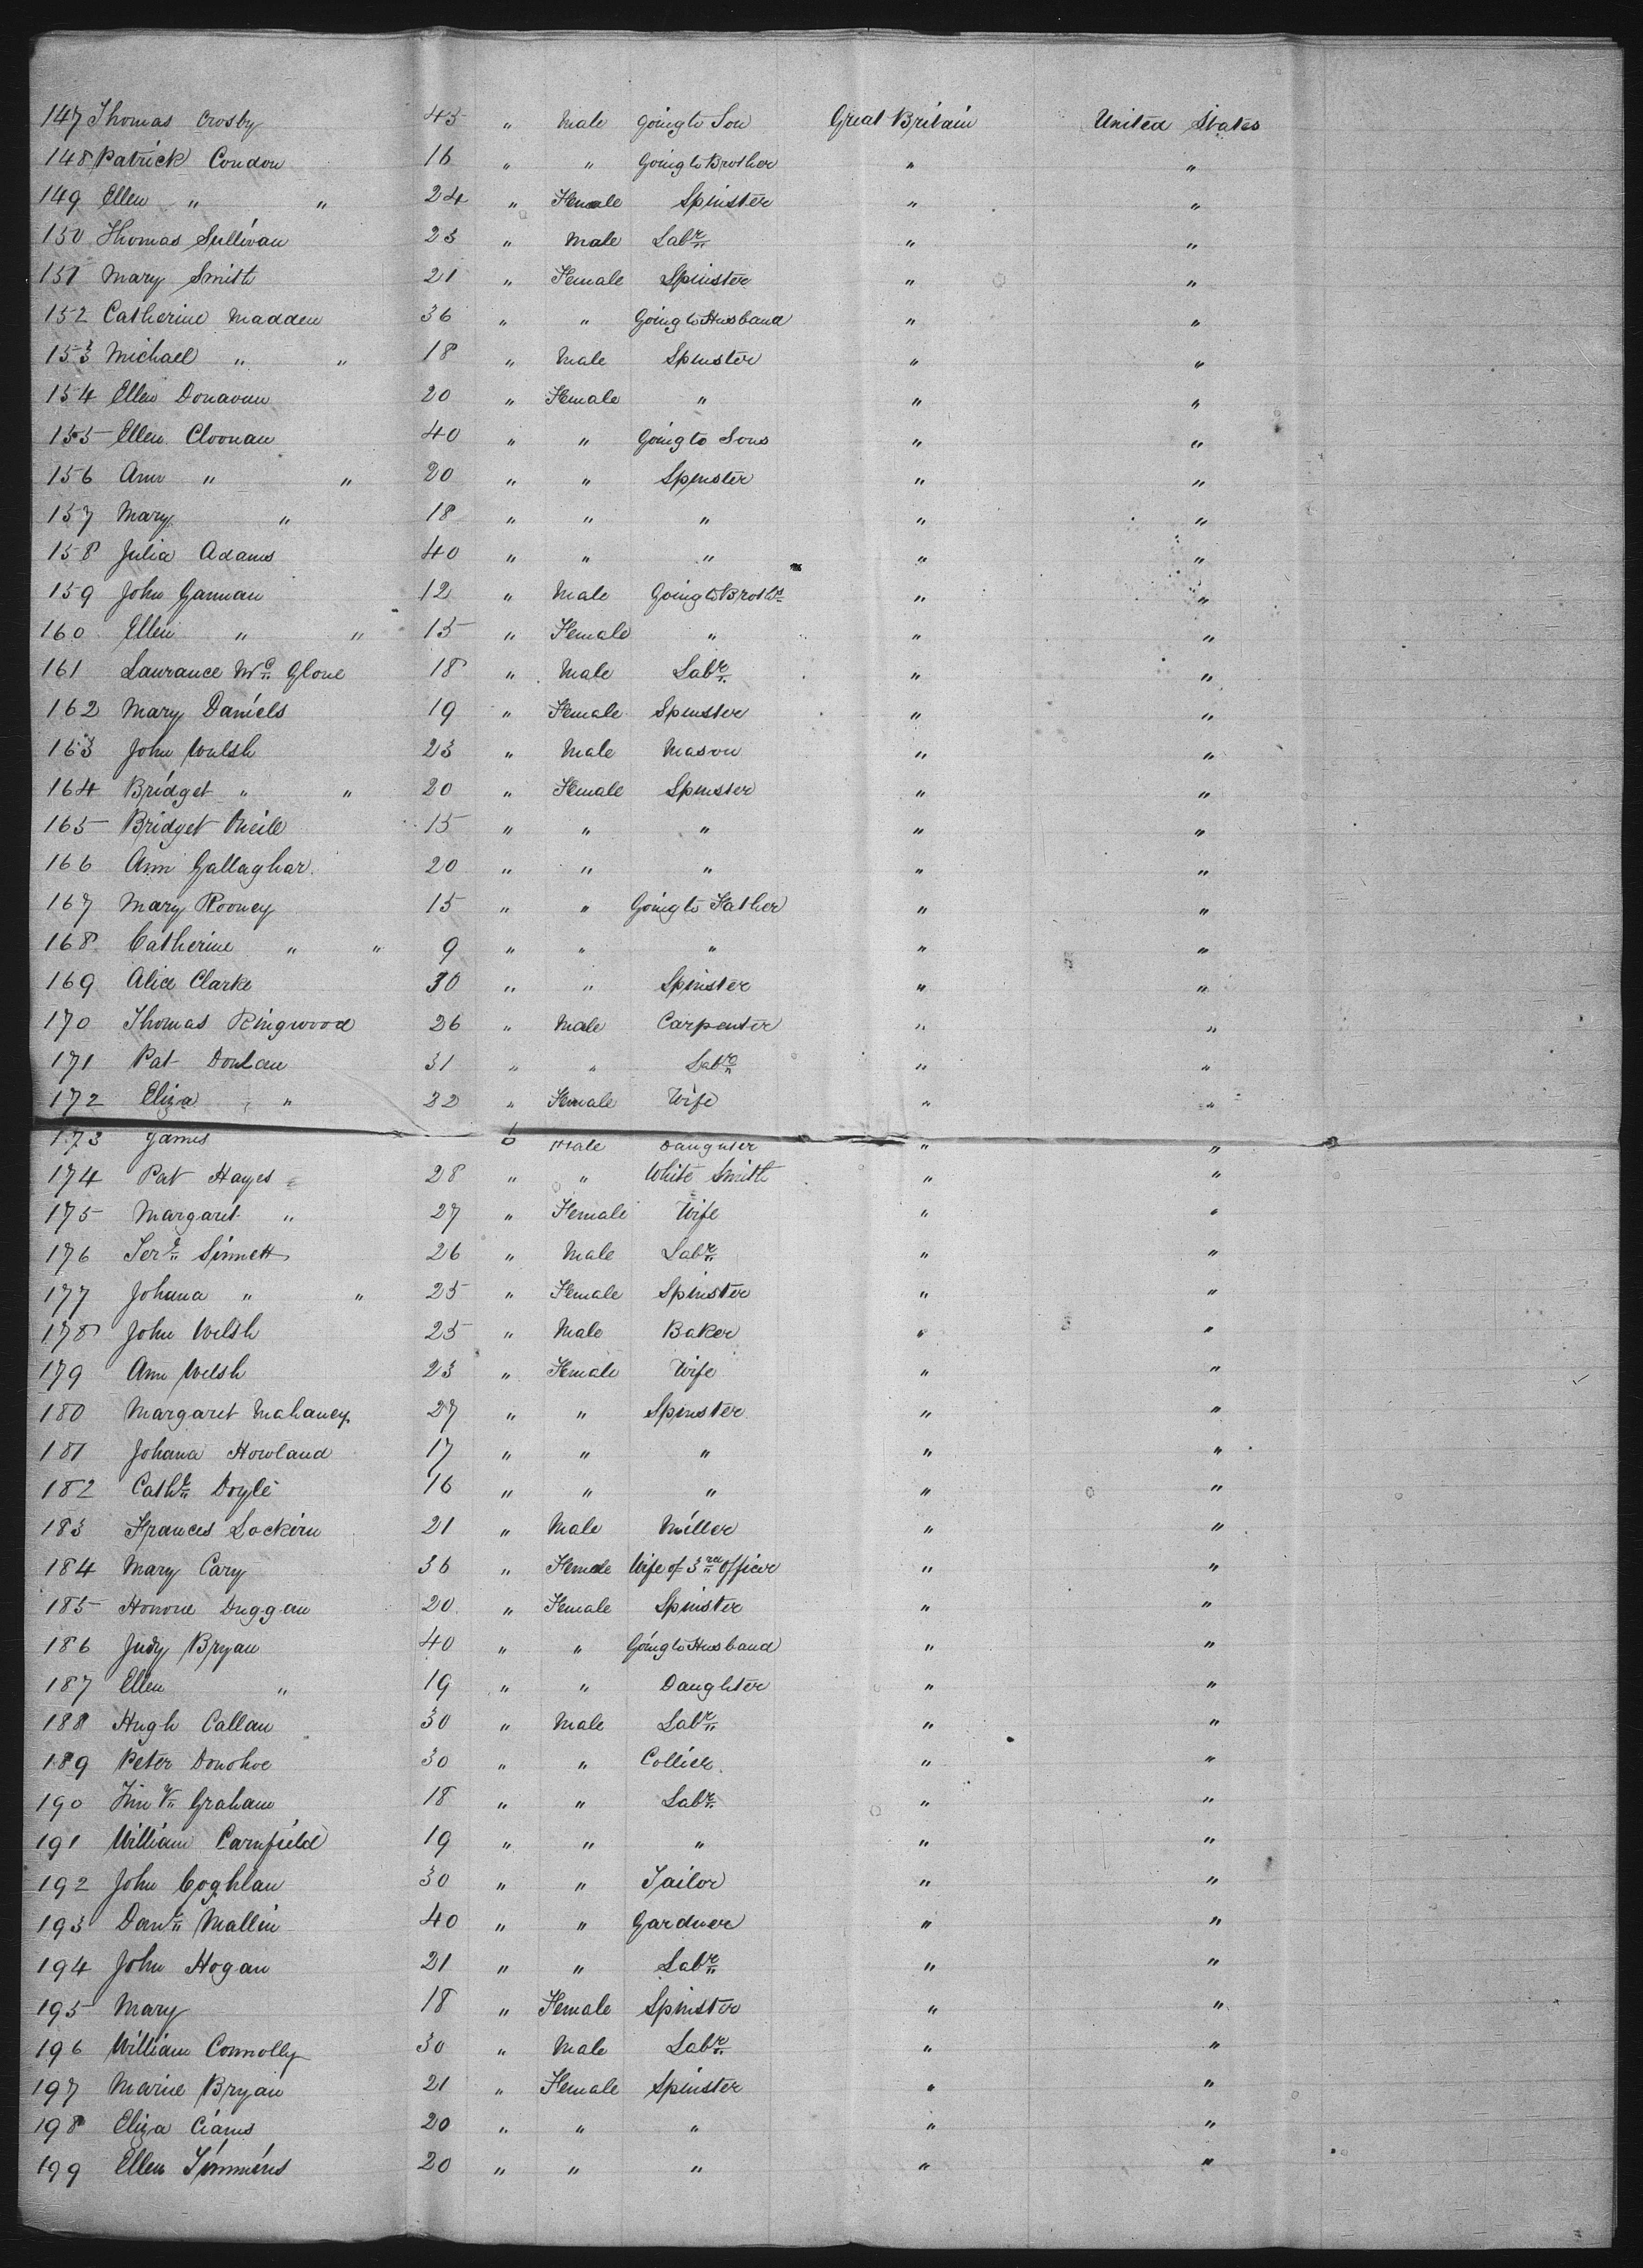 147 Thomas Crosby 45 " Male Going to Son Great Britain United States
148 Patrick Condon 16 " " Going to Brother " "
149 Ellen " " 24 " Female Spinster " "
150 Thomas Sullivan 23 " Male Labr " "
151 Mary Smith 21 " Female Spinster " "
152 Catherine Madden 36 " " Going to Husband " "
153 Michael " " 18 " Male Spinster " "
154 Ellen Donavan 20 " Female " " "
155 Ellen Cloonan 40 " " Going to Sons " "
156 Ann " " 20 " " Spinster " "
157 Mary " 18 " " " " "
158 Julia Adams 40 " " " " "
159 John Gannan 12 " Male Going to Brothr " "
160 Ellen " " 15 " Female " " "
161 Laurance Mc Glone 18 " Male Labr " "
162 Mary Daniels 19 " Female Spinster " "
163 John Walsh 23 " Male Mason " "
164 Bridget " " 20 " Female Spinster " "
165 Bridget Neill 15 " " " " "
166 Ann Gallaghar 20 " " " " "
167 Mary Rooney 15 " " Going to Father " "
168 Catherine " " 9 " " " " "
169 Alice Clarke 30 " " Spinster " "
170 Thomas Ringwood 26 " Male Carpenter " "
171 Pat Donlan 31 " " Labr " "
172 Eliza " 32 " Female Wife " "
173 James 6 Male Daughter " "
174 Pat Hayes 28 " " White Smith " "
175 Margaret " 27 " Female Wife " "
176 Sinnett 26 " Male Labr " "
177 Johana " " 25 " Female Spinster " "
178 John Welsh 25 " Male Baker " "
179 Ann Welsh 23 " Female Wife " "
180 Margaret Mahaney 27 " " Spinster " "
181 Johana Howland 17 " " " " "
182 Cathr Doyle 16 " " " " "
183 Frances Lockirn 21 " Male Miller " "
184 Mary Cary 36 " Female Wife of 3rd Officer " "
185 Honore Duggan 20 " Female Spinster " "
186 Judy Bryan 40 " " Going to Husband " "
187 Ellen " 19 " " Daughter " "
188 Hugh Callan 30 " Male Labr " "
189 Peter Donohoe 30 " " Collier " "
190 Graham 18 " " Labr " "
191 William Carnfield 19 " " " " "
192 John Coghlan 30 " " Tailor " "
193 Danl Mallin 40 " " Gardner " "
194 John Hogan 21 " " Labr " "
195 Mary 18 " Female Spinster " "
196 William Connolly 30 " Male Labr " "
197 Marie Bryan 21 " Female Spinster " "
198 Eliza 20 " " " " "
199 Ellen Timmins 20 " " " " "